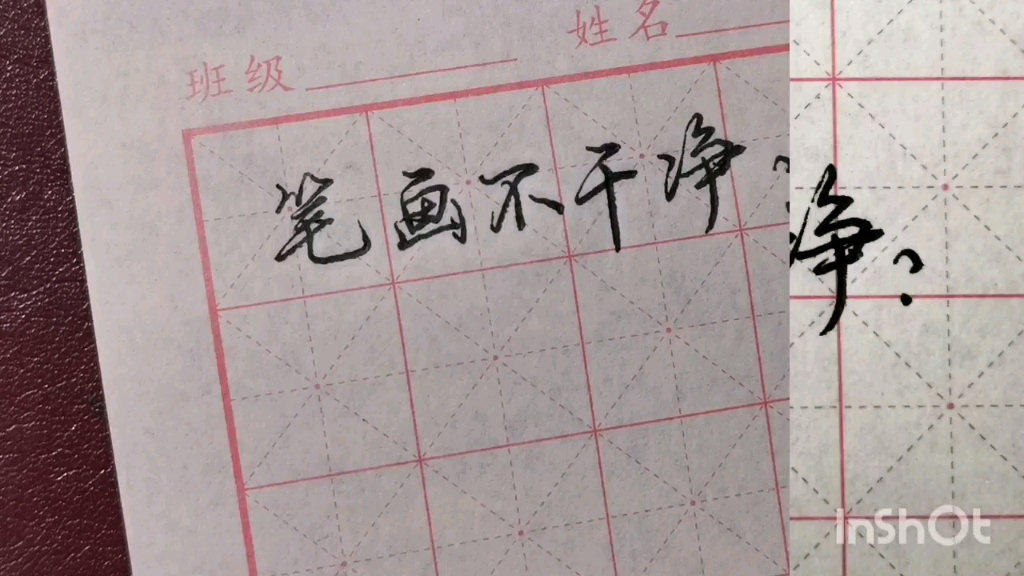 班级 姓名
笔画不干净?
净?
InShOt